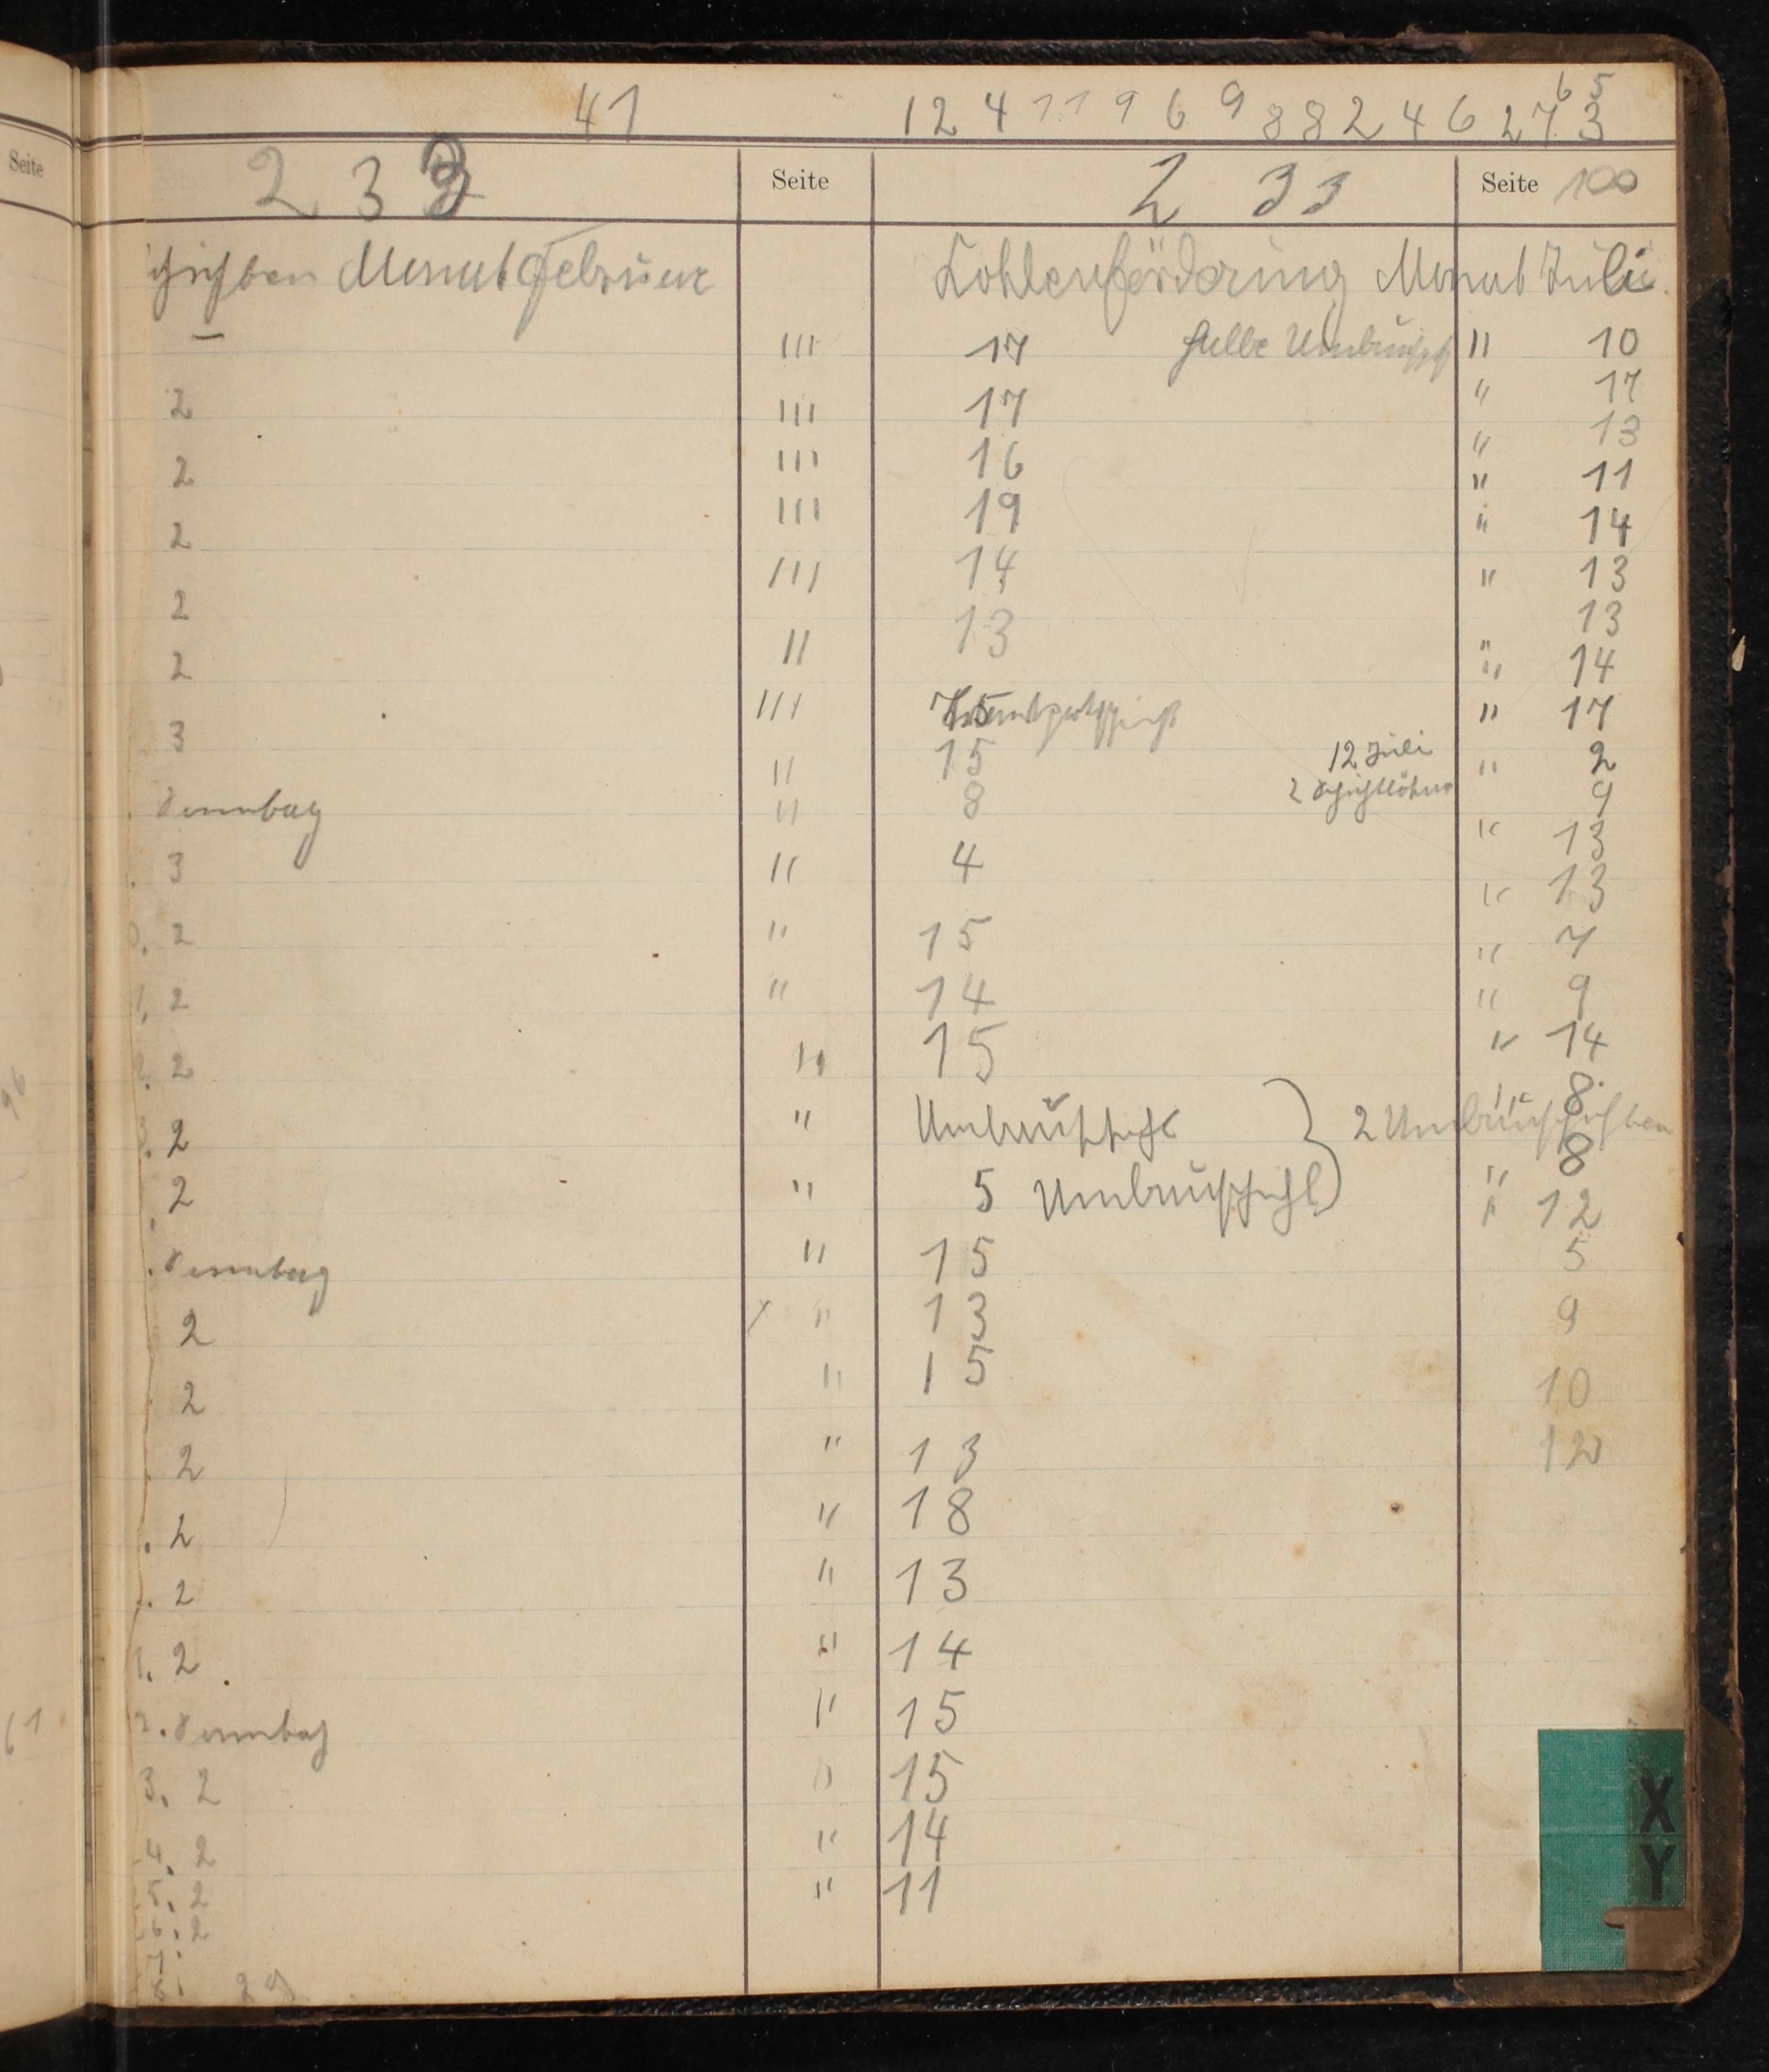 41 12 4 11 9 6 9 8 8 2 4 6 27 3
6 5
Seite 2 3 3 Seite 2 33 Seite 100
Schichten Monat Februar Kohlenförderung Monat Juli.
— III 17 halbe Umbauschicht II 10
2 III 17 " 17
2 III 16 " 13
2 III 19 " 11
2 III 14 " 14
2 II 13 " 13
3 III 13
Sonntag II 15 " 14
3 II 8 " 17
0. 2 II 4 12 Juli " 2
1. 2 " 15 2 Schichtlöhne 9
2. 2 " 14 " 13
3. 2 II 15 " 13
2 " Umbauschicht } 2 Umbauschichten " 7
. Sonntag " 5 Umbauschicht " 9
2 " 15 " 14
2 x " 13 " 8
2 " 15 " 8
. 2 " 13 " 12
. 2 " 18 5
1. 2 " 13 9
2. Sonntag " 14 10
3. 2 " 15 12
4. 2 " 15
5. 2 " 14
6. 2 " 11
7.
8.
96
61
X
Y